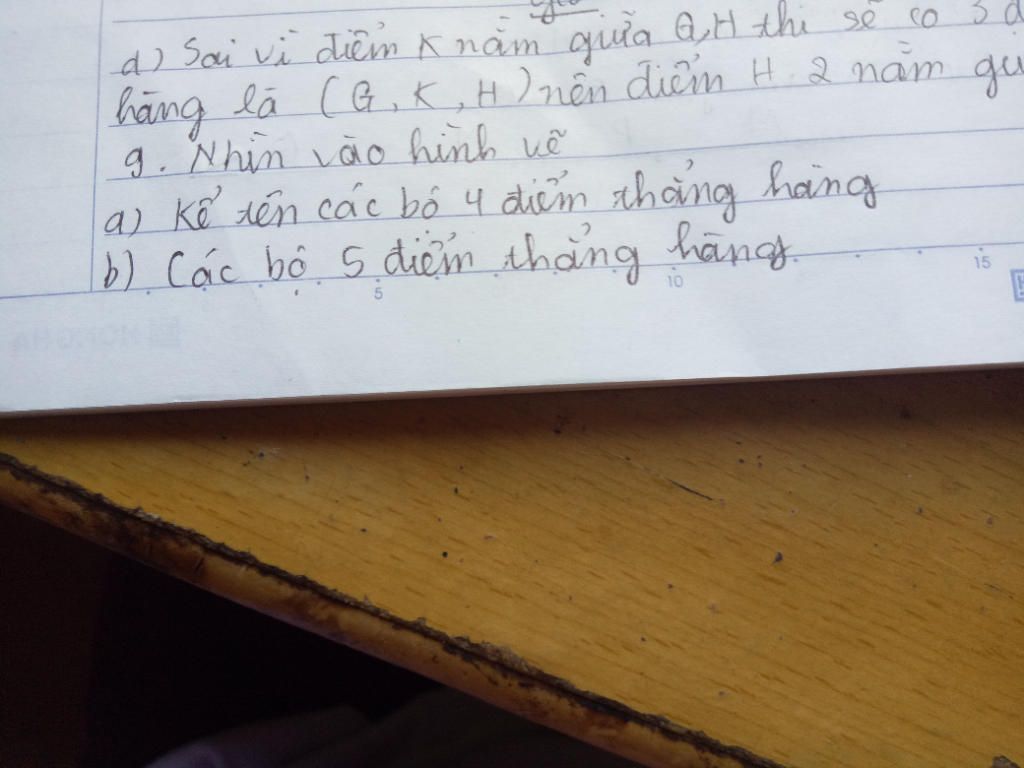 d) Sai vì điểm K nằm giữa G,H thì sẽ có 3 đ
hàng là (G, K, H) nên điểm H 2 nằm gi
9. Nhìn vào hình vẽ
a) Kể tên các bộ 4 điểm thẳng hàng
b) Các bộ 5 điểm thẳng hàng
5 10 15
HONG HA